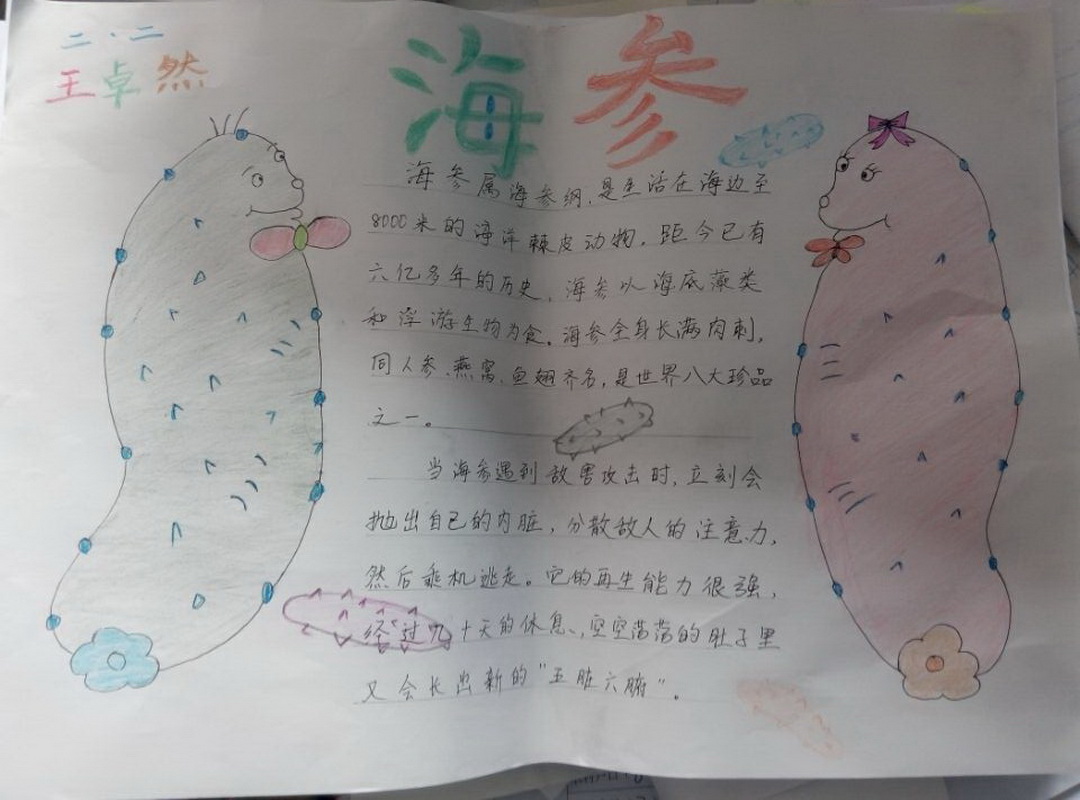 二·二
王卓然
海参
海参属海参纲,是生活在海边至
8000米的海洋棘皮动物,距今已有
六亿多年的历史,海参以海底藻类
和浮游生物为食。海参全身长满肉刺,
同人参、燕窝、鱼翅齐名,是世界八大珍品
之一。
当海参遇到敌害攻击时,立刻会
抛出自己的内脏,分散敌人的注意力,
然后乘机逃走。它的再生能力很强,
经过几十天的休息,空空荡荡的肚子里
又会长出新的"五脏六腑"。